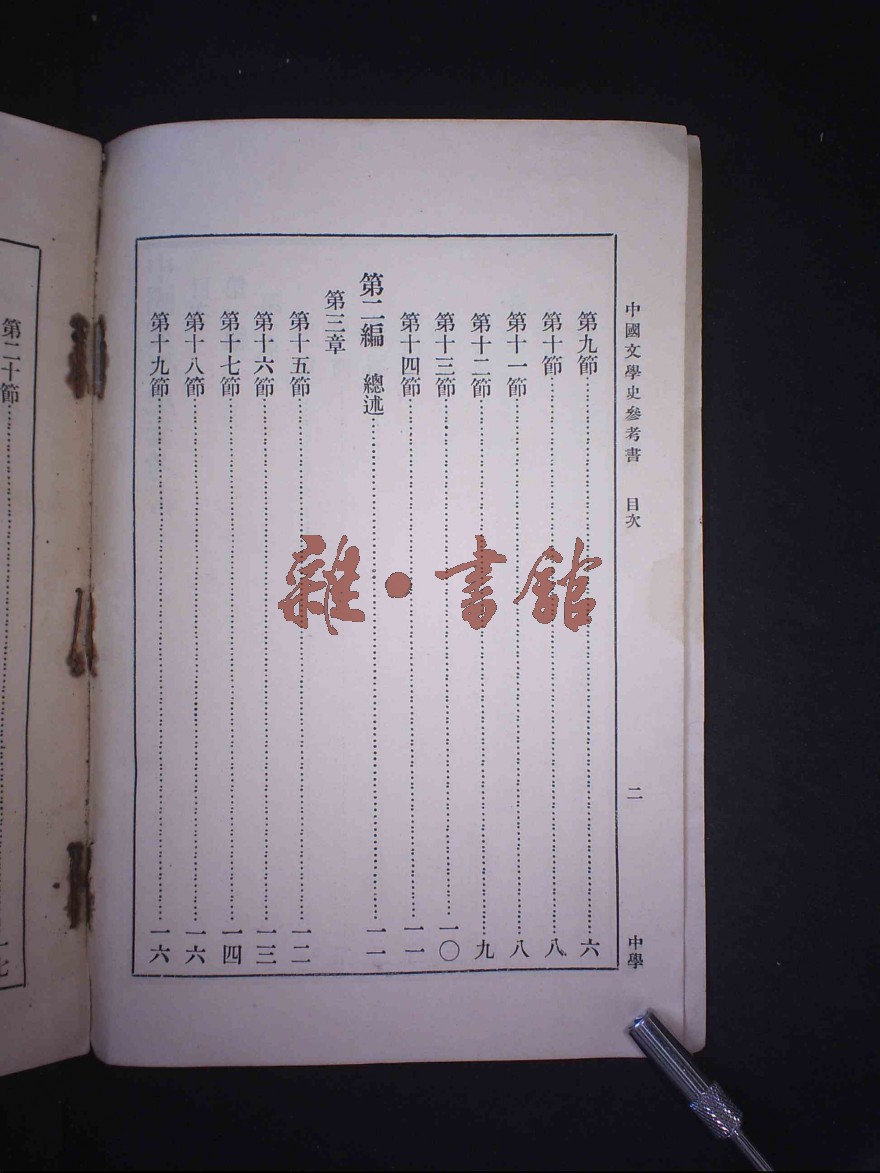 中國文學史參考書 目次 二 中學
第九節……六
第十節……八
第十一節……八
第十二節……九
第十三節……一〇
第十四節……一一
第二編 總述……一一
第三章
第十五節……一二
第十六節……一三
第十七節……一四
第十八節……一六
第十九節……一六
第二十節……一七
雜·書館